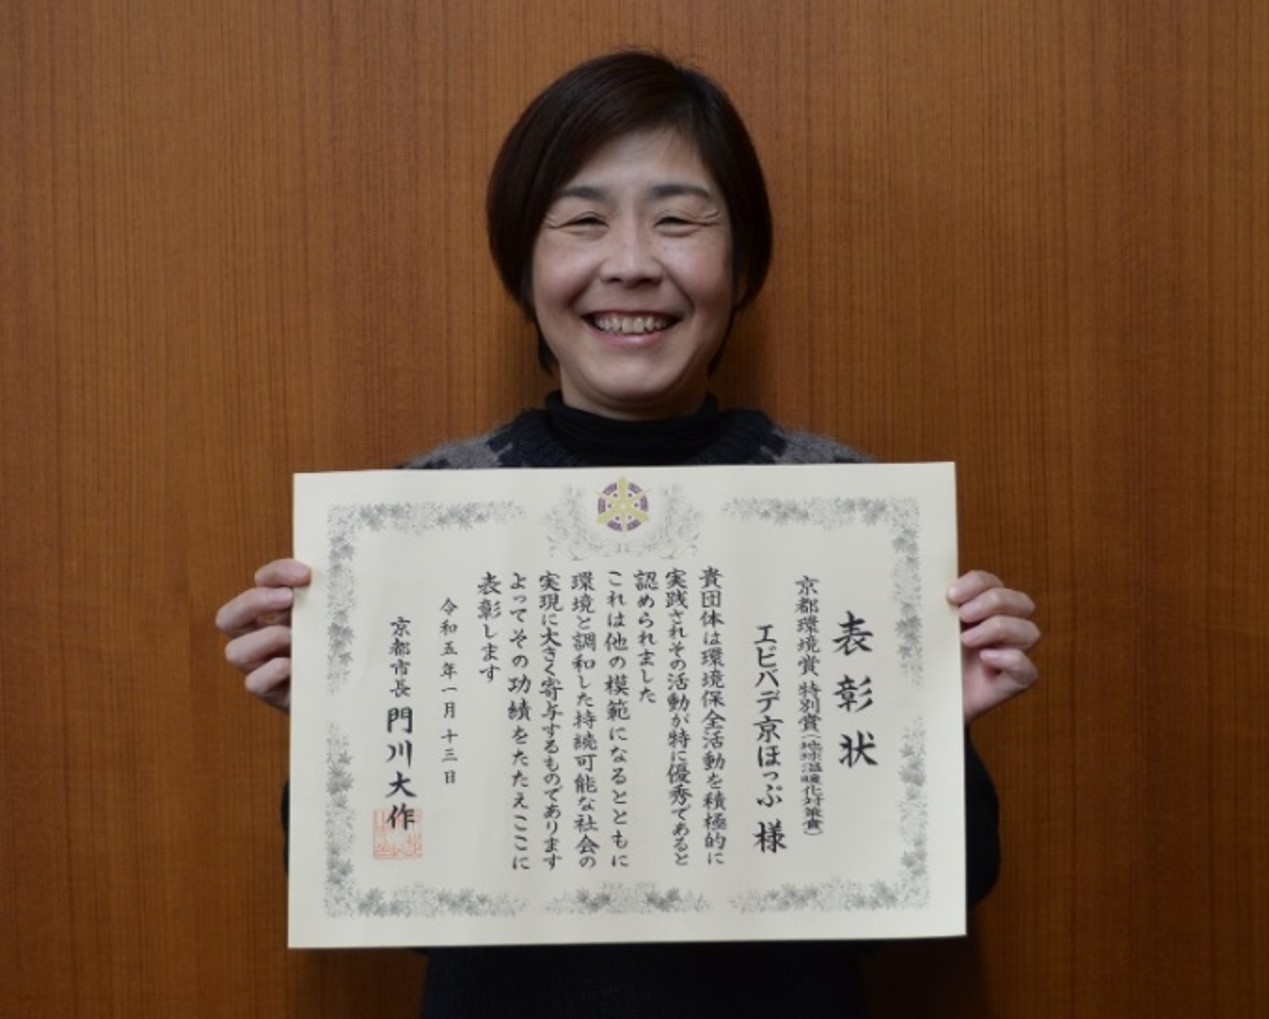 表彰状
京都環境賞 特別賞(地球温暖化対策賞)
エビバデ京ほっぷ 様
貴団体は環境保全活動を積極的に
実践されその活動が特に優秀であると
認められました
これは他の模範になるとともに
環境と調和した持続可能な社会の
実現に大きく寄与するものであります
よってその功績をたたえここに
表彰します
令和五年一月十三日
京都市長 門川大作